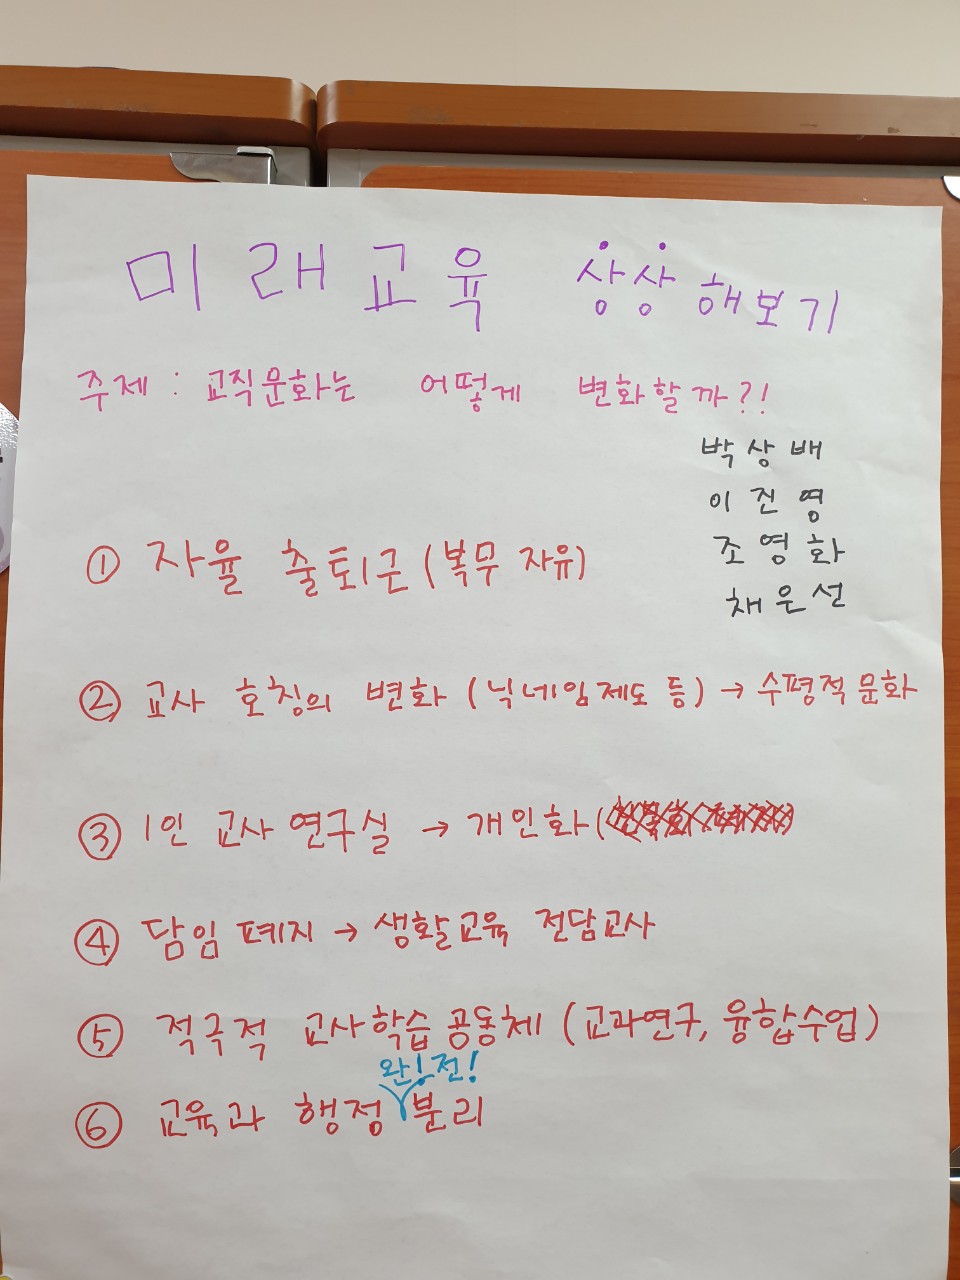 미래교육 상상해보기
주제 : 교직문화는 어떻게 변화할까?!
박상배
이진영
조영화
채운선
① 자율 출퇴근 (복무 자유)
② 교사 호칭의 변화 (닉네임제도 등) → 수평적문화
③ 1인 교사연구실 → 개인화 (
④ 담임 폐지 → 생활교육 전담교사
⑤ 적극적 교사학습공동체 (교과연구, 융합수업)
완!전!
⑥ 교육과 행정 분리